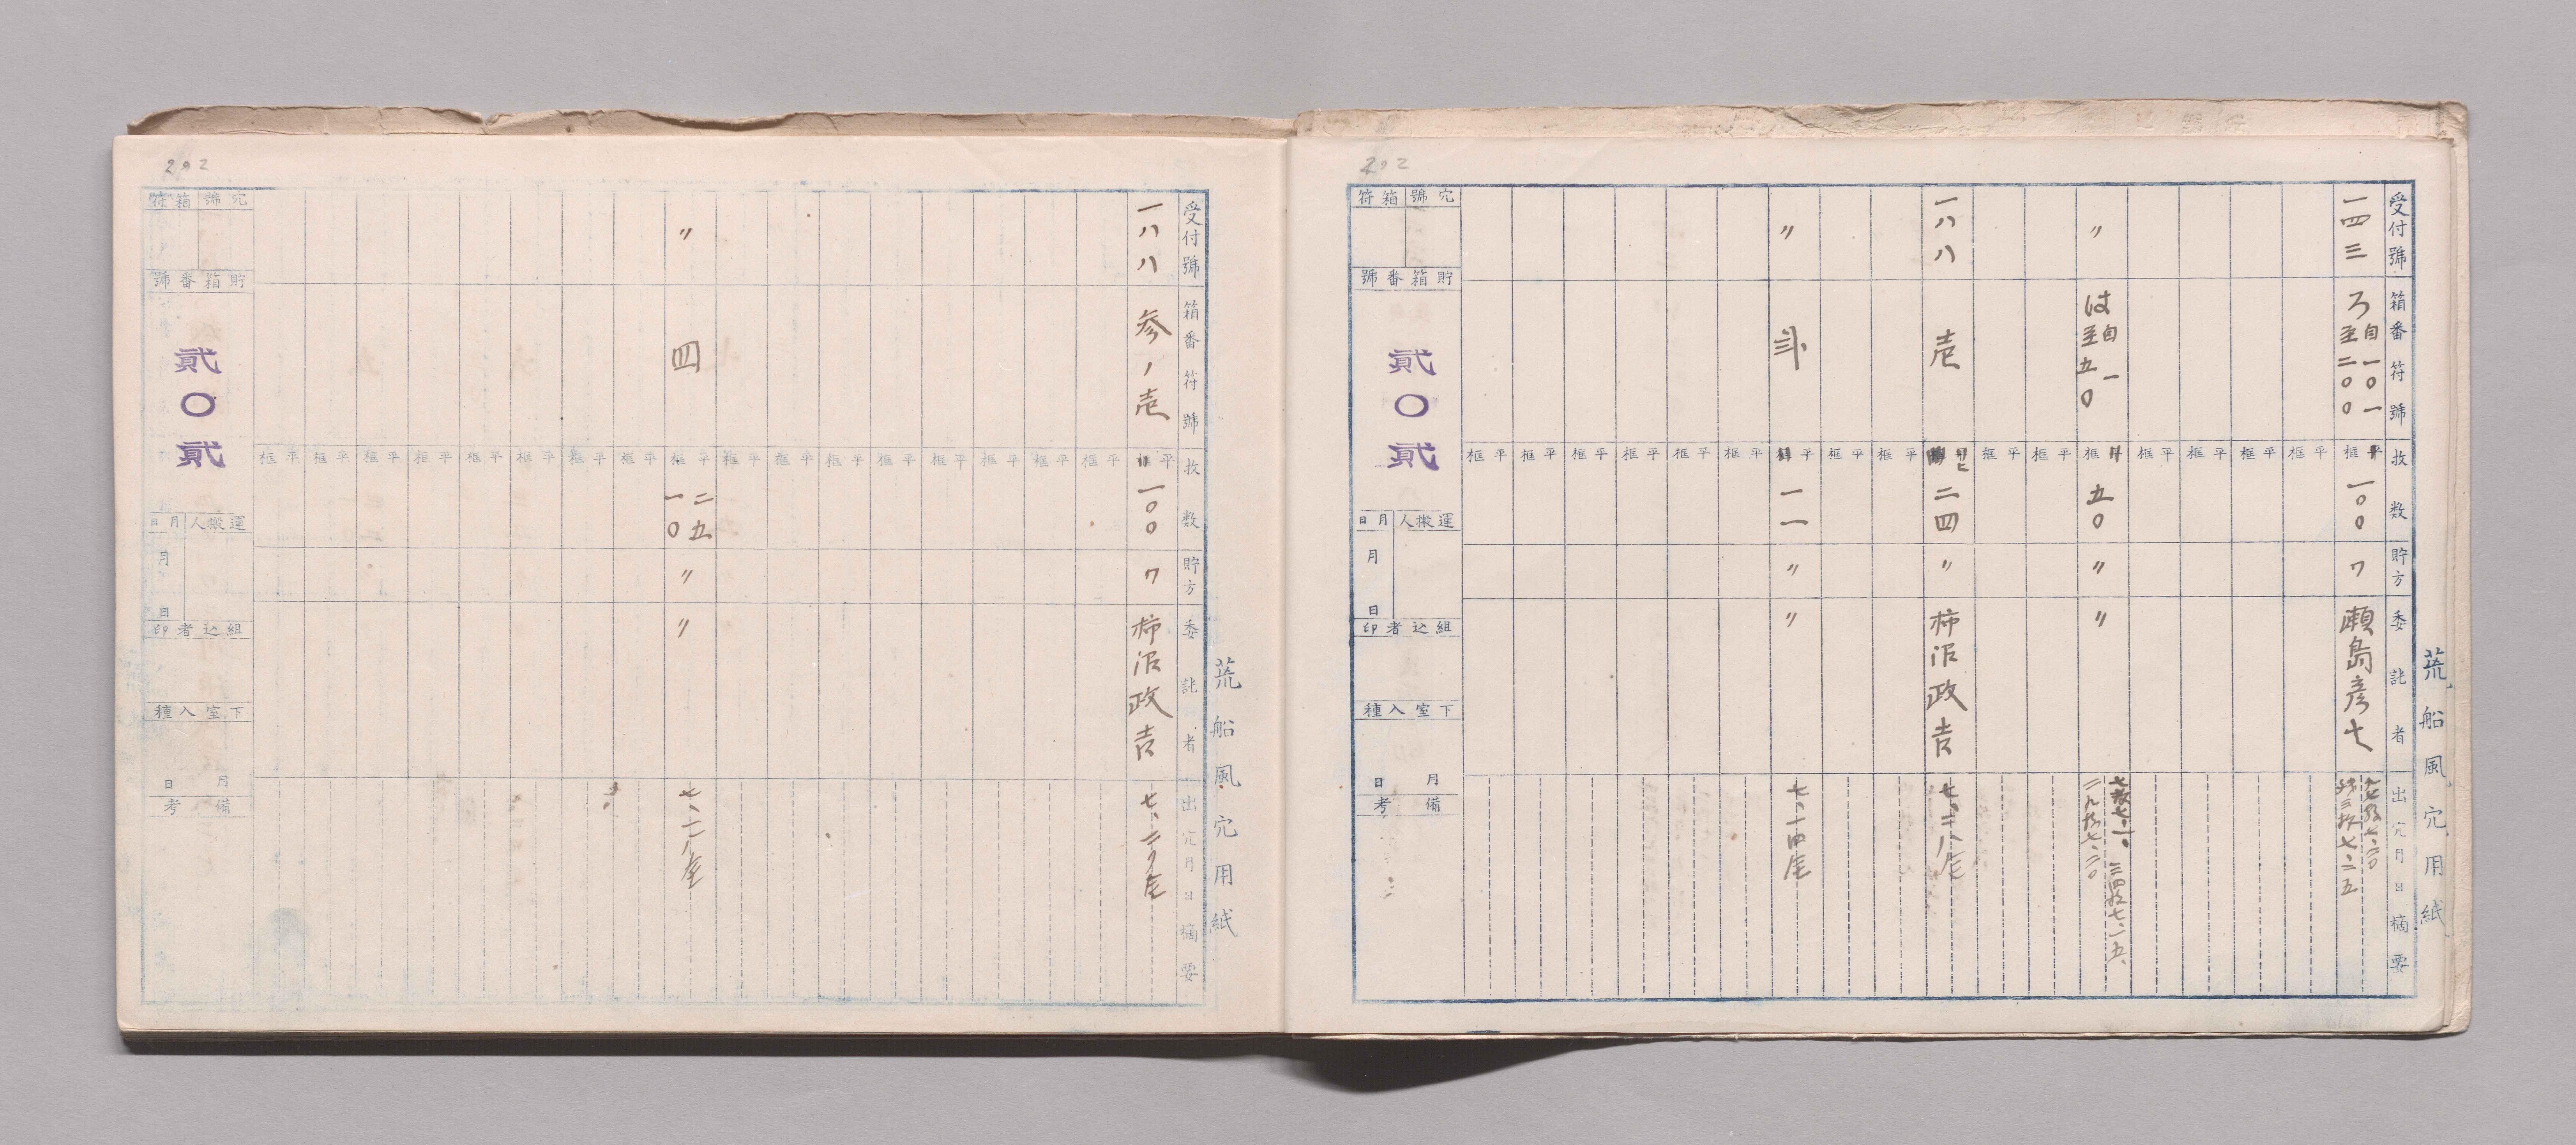 荒船風穴用紙
受付號
箱番符號
枚数
貯方
委託者
出穴月日摘要
一四三
ろ自一〇一
至二〇〇
框平
一〇〇
ワ
瀬島彦七
〃
は自一
至五〇
框
五〇
〃
〃
一八八
壱
二四
〃
柿沼政吉
〃
平
一一
〃
〃
穴號箱符
貯箱番號
貳〇貳
運搬人月日
月
日
組込者印
下室入種
月日
備考
202
荒船風穴用紙
受付號
箱番符號
枚数
貯方
委託者
出穴月日摘要
一八八
参ノ壱
平
一〇〇
ワ
柿沼政吉
〃
四
平框
二五
一〇
〃
〃
穴號箱符
貯箱番號
貳〇貳
運搬人月日
月
日
組込者印
下室入種
月日
備考
202